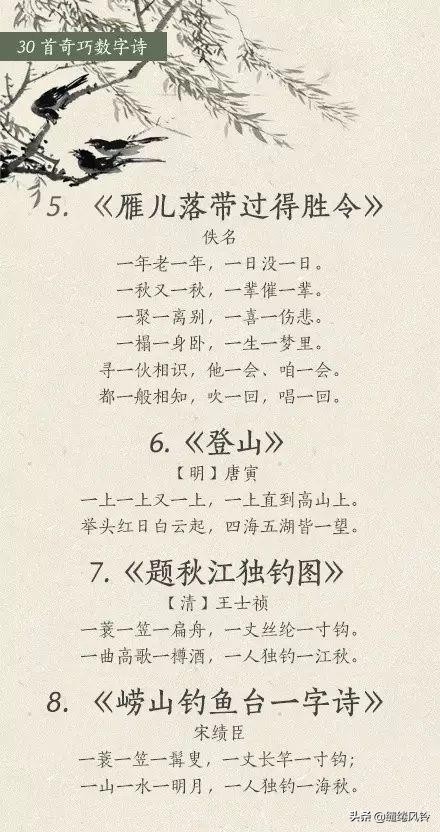 30 首奇巧数字诗
5. 《雁儿落带过得胜令》
佚名
一年老一年，一日没一日。
一秋又一秋，一辈催一辈。
一聚一离别，一喜一伤悲。
一榻一身卧，一生一梦里。
寻一伙相识，他一会、咱一会。
都一般相知，吹一回，唱一回。
6. 《登山》
【明】唐寅
一上一上又一上，一上直到高山上。
举头红日白云起，四海五湖皆一望。
7. 《题秋江独钓图》
【清】王士祯
一蓑一笠一扁舟，一丈丝纶一寸钩。
一曲高歌一樽酒，一人独钓一江秋。
8. 《崂山钓鱼台一字诗》
宋绩臣
一蓑一笠一髯叟，一丈长竿一寸钩；
一山一水一明月，一人独钓一海秋。
头条 @缠绻风铃